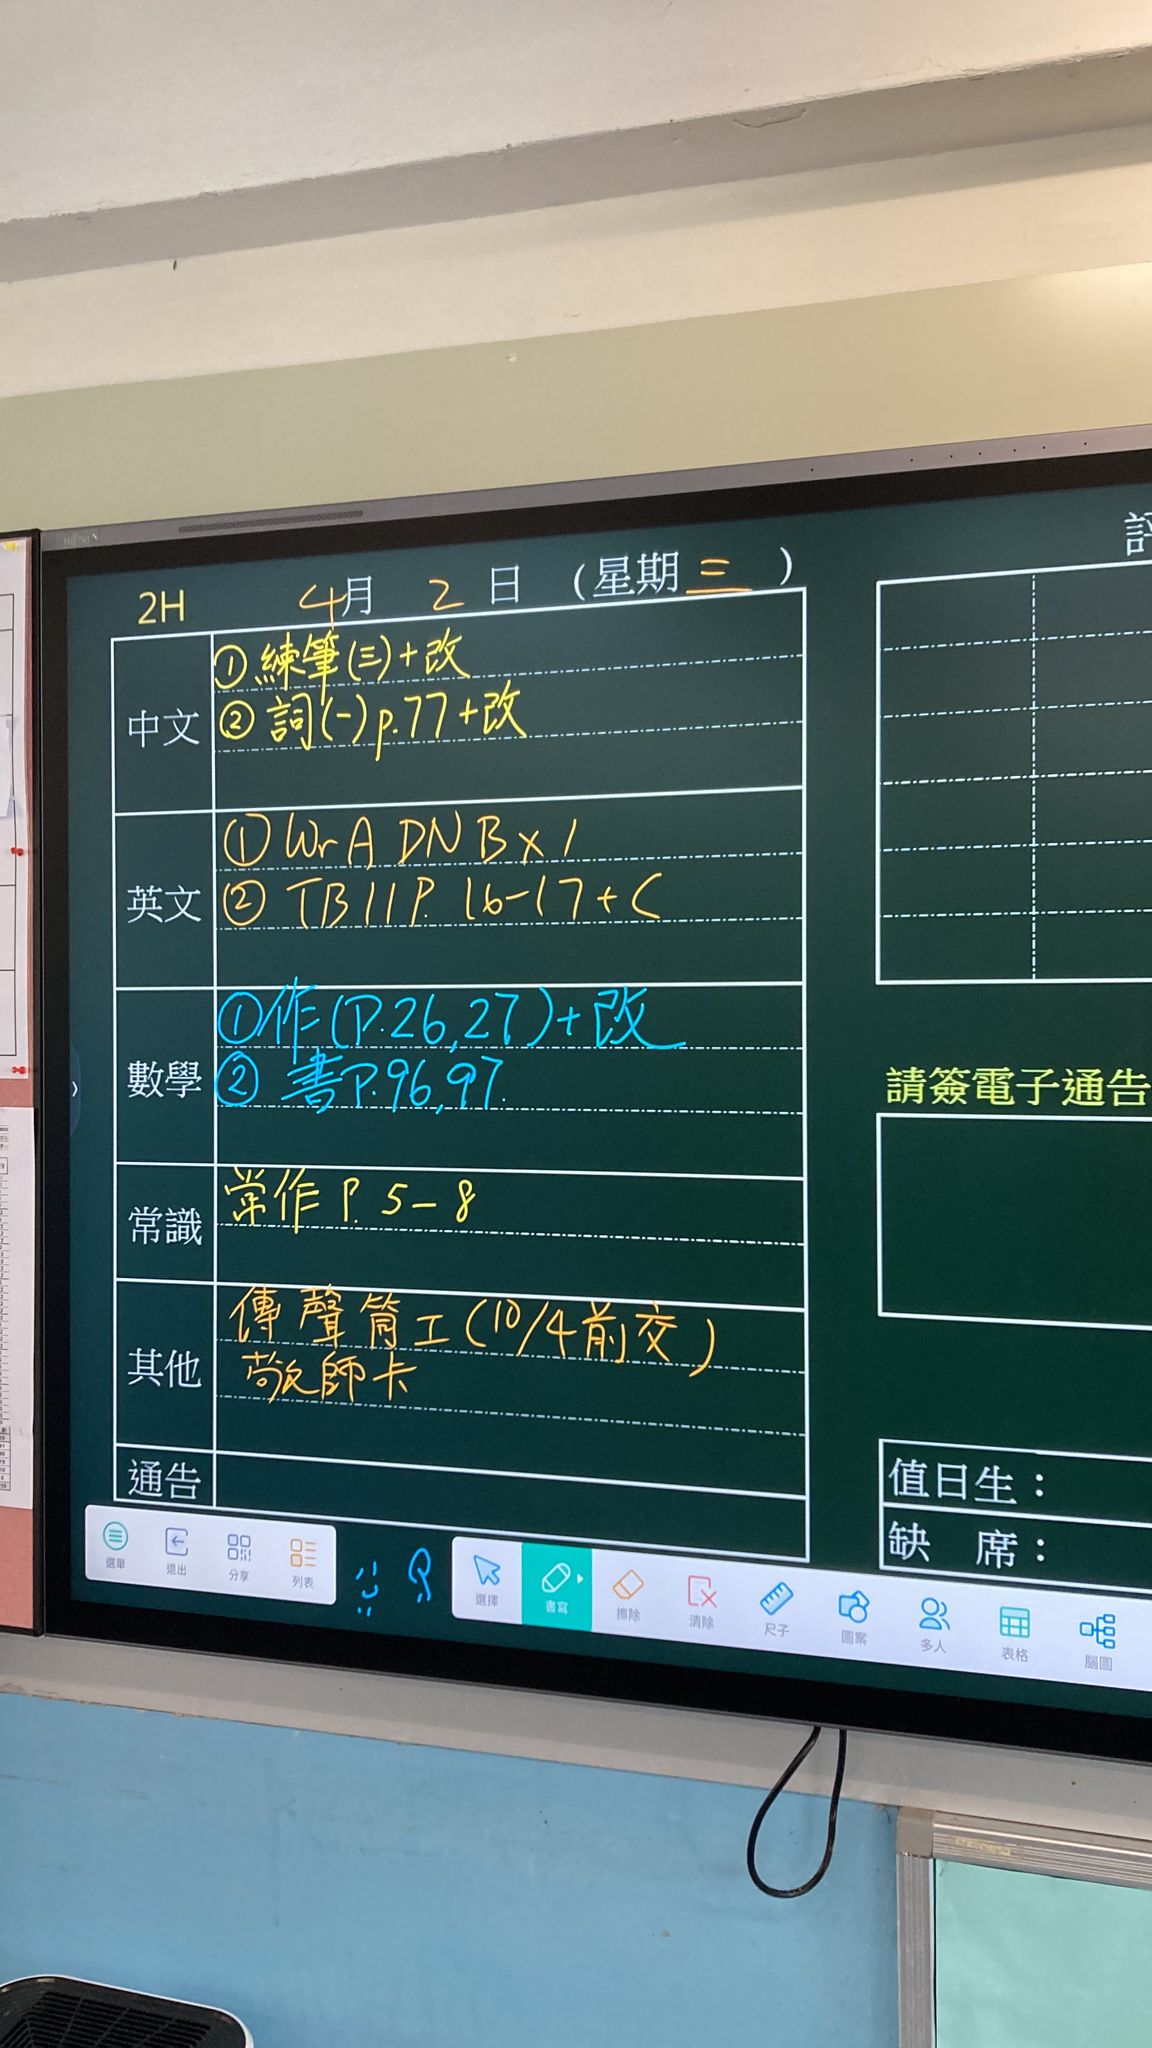 2H 4月 2日 (星期三)
中文
①練筆(三)+改
②詞(一)p.77+改
英文
①Wr A DNB x 1
②TB11P. 16-17+C
數學
①作(P.26,27)+改
②書P.96,97.
常識
常作P. 5-8
其他
傳聲筒工(10/4前交)
敬師卡
通告
請簽電子通告
值日生：
缺 席：
選單
退出
分享
列表
選擇
書寫
擦除
清除
尺子
圖案
多人
表格
腦圖